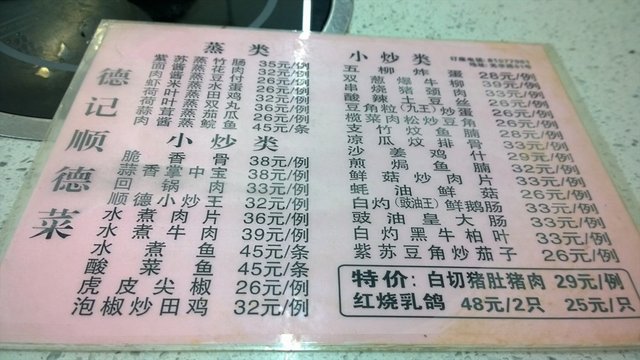 德记顺德菜
蒸类
紫苏蒸竹肠 35元/例
面酱蒸花肉 32元/例
虾酱蒸豆付 26元/例
荷叶蒸水蛋 26元/例
荷叶蒸田鸡 32元/例
蒸双丸 36元/例
蒜茸蒸茄瓜 26元/例
肉酱蒸鲩鱼 45元/条
小炒类
脆香骨 38元/例
蒜香中宝 38元/例
回掌锅肉 33元/例
顺德小炒王 32元/例
水煮肉片 36元/例
水煮牛肉 39元/例
水煮鱼 45元/条
酸菜鱼 45元/条
虎皮尖椒 26元/例
泡椒炒田鸡 32元/例
小炒类
五柳炸蛋 28元/例
双葱爆牛柳 39元/例
串烧猪颈肉 39元/例
酸辣土豆丝
豆角粒(九王)炒蛋
榄菜肉松炒豆角
支竹炆鱼腩
凉瓜炆排骨 33元/例
沙姜鸡什 29元/例
煎焗鱼腩 32元/例
鲜菇炒肉片 33元/例
蚝油鲜菇 26元/例
白灼(豉油王)鲜鹅肠 33元/例
豉油皇大肠 33元/例
白灼黑牛柏叶 33元/例
紫苏豆角炒茄子 26元/例
特价：白切猪肚猪肉 29元/例
红烧乳鸽 48元/2只 25元/只